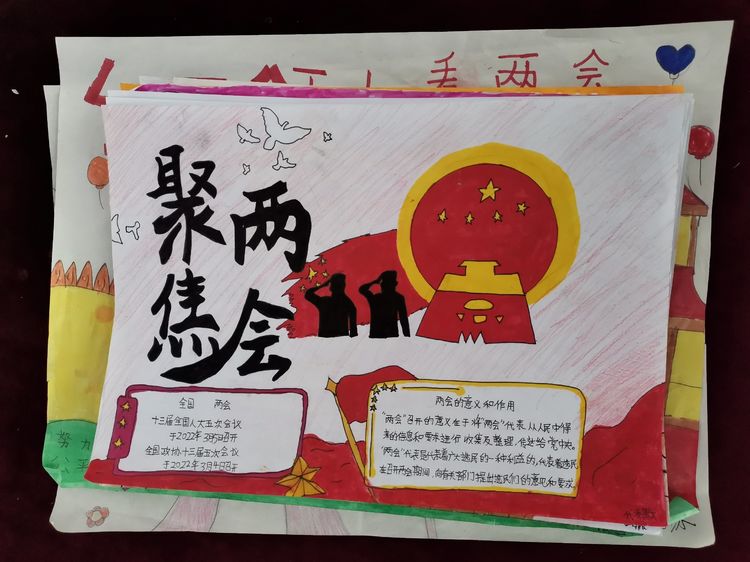 丢两会
聚两
焦会
全国 两会
十三届全国人大五次会议
于2022年3月5日召开
全国政协十三届五次会议
于2022年3月4日召开
两会的意义和作用
“两会”召开的意义在于将“两会”代表从人民中得
来的信息和要求进行收集及整理,传达给党中央。
“两会”代表是代表着广大选民的一种利益的,代表着选民
在召开两会期间,向有关部门提出选民们的意见和要求
努力